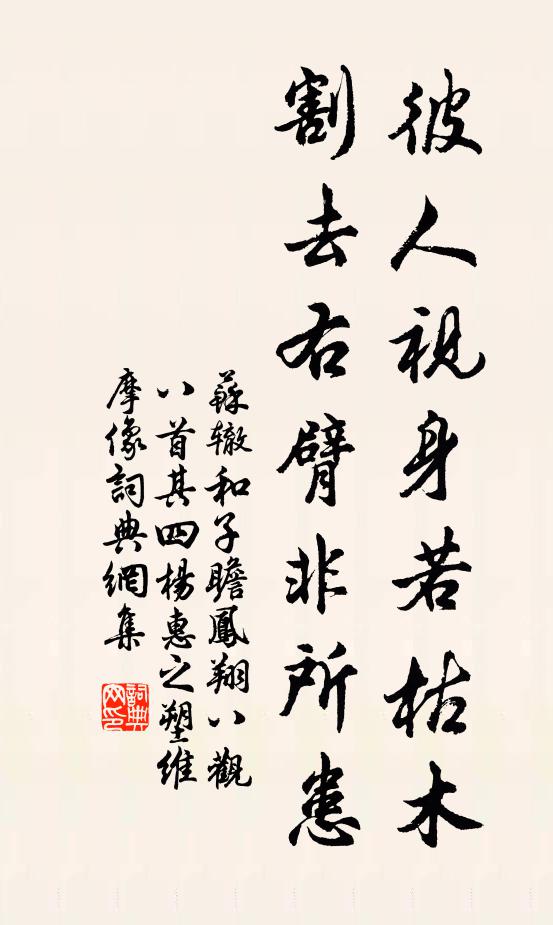 彼人視身若枯木
割去右臂非所患
蘇辙和子瞻鳳翔八觀
八首其四楊惠之塑維
摩像詞典網集
詞典
网印